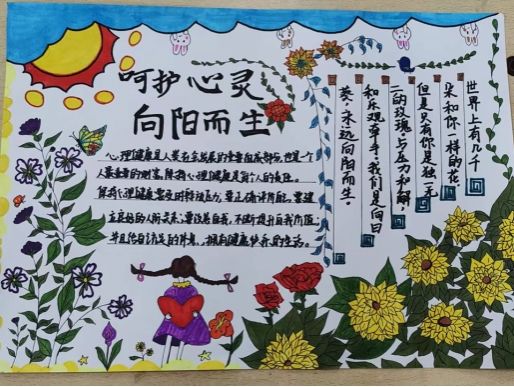 呵护心灵
向阳而生
心理健康是人类健康发展的重要组成部分,也是一个
人最重要的财富,保持心理健康是每个人的责任。
保持心理健康需要及时转移压力,要正确评价自己,要建
立良好的人际关系,要改善自我,不断提升自我价值
并且给自己充足的休息,拥有健康快乐的生活。
世界上有几千
朵和你一样的花
但是只有你是独一无
二的玫瑰,与压力和解,
和乐观牵手,我们是向日
葵,永远向阳而生。